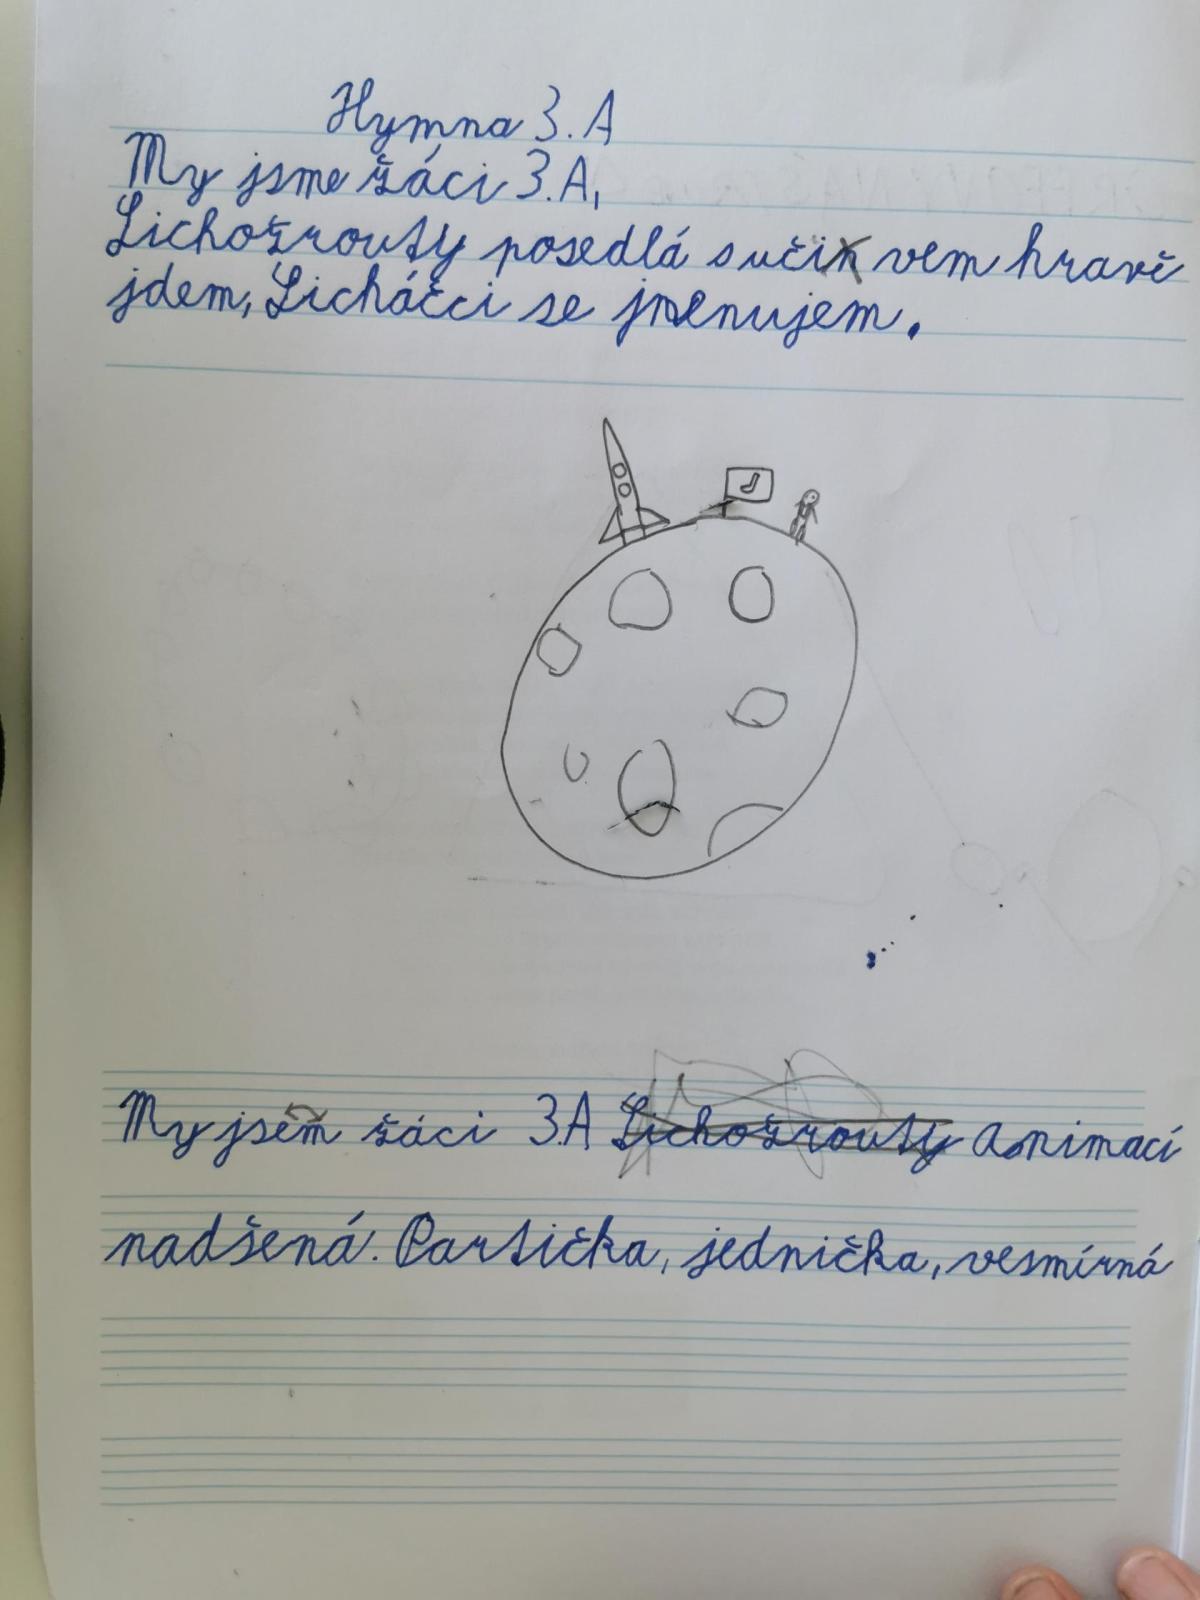 Hymna 3.A
My jsme žáci 3.A,
Lichožrouty posedlá s učivem hravě
jdem, Licháčci se jmenujem.
My jsem žáci 3.A Lichožrouty animací
nadšená. Partička, jednička, vesmírná